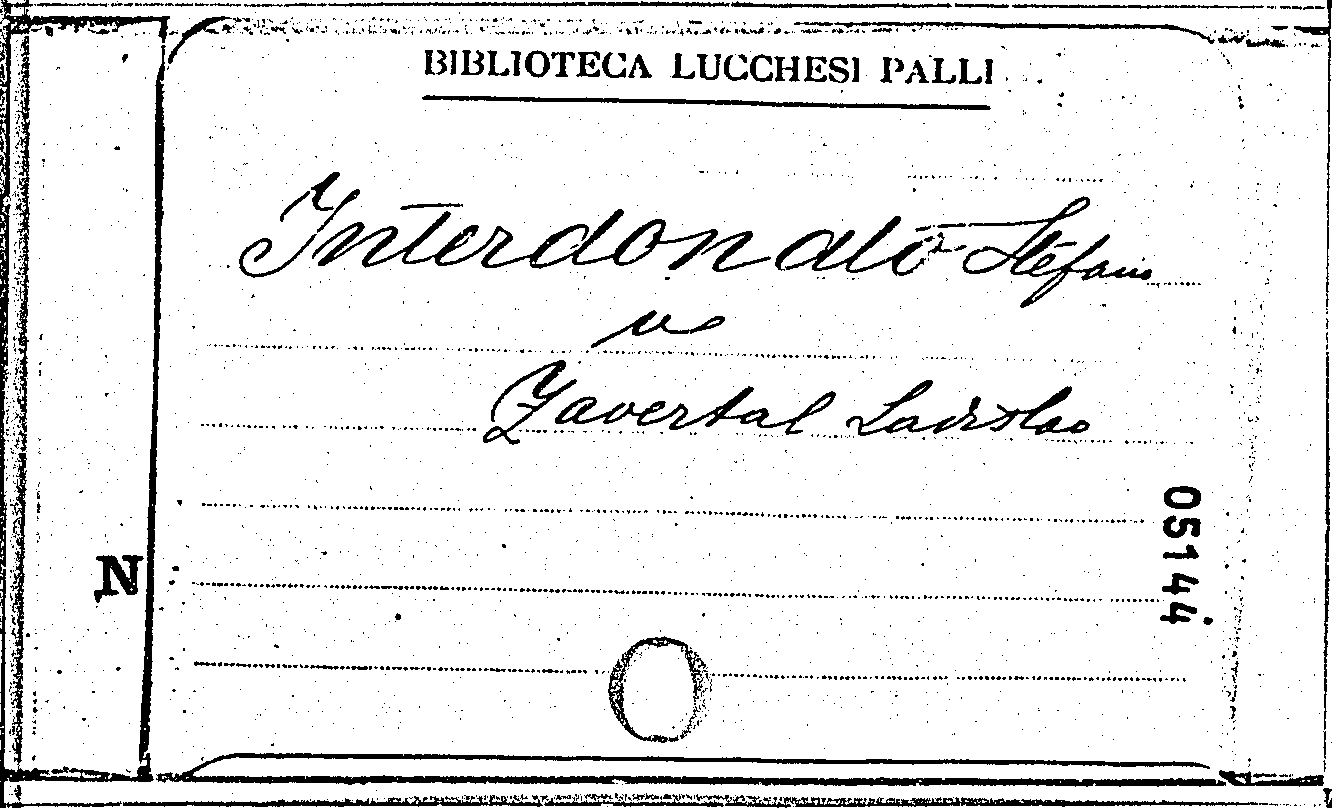 BIBLIOTECA LUCCHESI PALLI
Interdonato Stefano
v
Zavertal Ladislao
05144
N